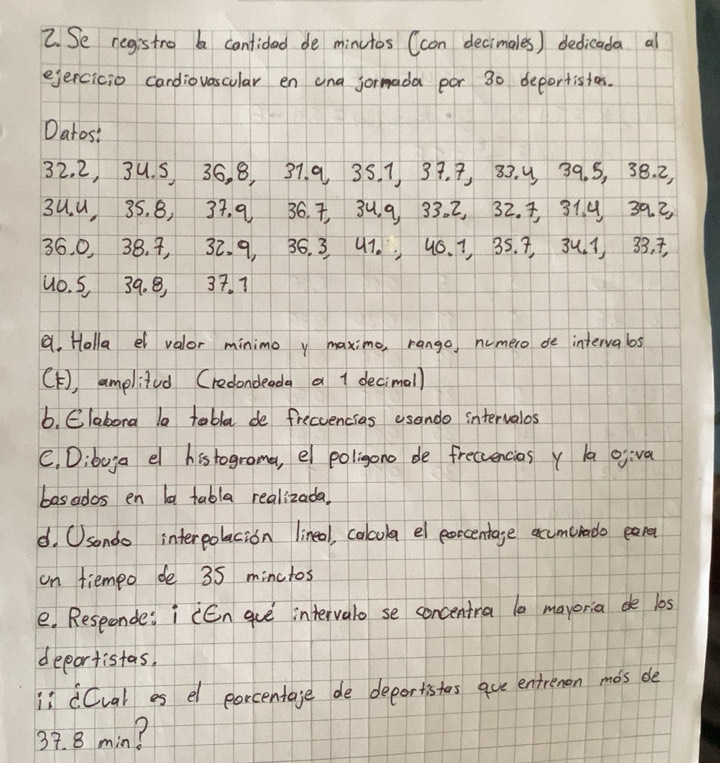 2. Se registro la cantidad de minutos (con decimales) dedicada al
ejercicio cardiovascular en una jormada por 30 deportistas.
Datos:
32.2, 34.5, 36.8, 31.9, 35.1, 37.7, 33.4, 39.5, 38.2,
34.4, 35.8, 37.9, 36.7, 34.9, 33.2, 32.7, 31.4, 39.2,
36.0, 38.7, 32.9, 36.3, 41. , 40.1, 35.7, 34.1, 33.7,
40.5, 39.8, 37.1
a. Halla el valor minimo y maximo, rango, numero de intervalos
(k), amplitud (redondeada a 1 decimal)
b. Elabora la tabla de frecuencias usando intervalos
C. Dibuja el histograma, el poligono de frecuencias y la ojiva
basados en la tabla realizada.
d. Usando interpolación lineal, calcula el porcentage acumulado para
un tiempo de 35 minutos
e. Responde: i ¿En qué intervalo se concentra la mayoria de los
deportistas.
ii ¿Cual es el porcentaje de deportistas que entrenen más de
37.8 min?